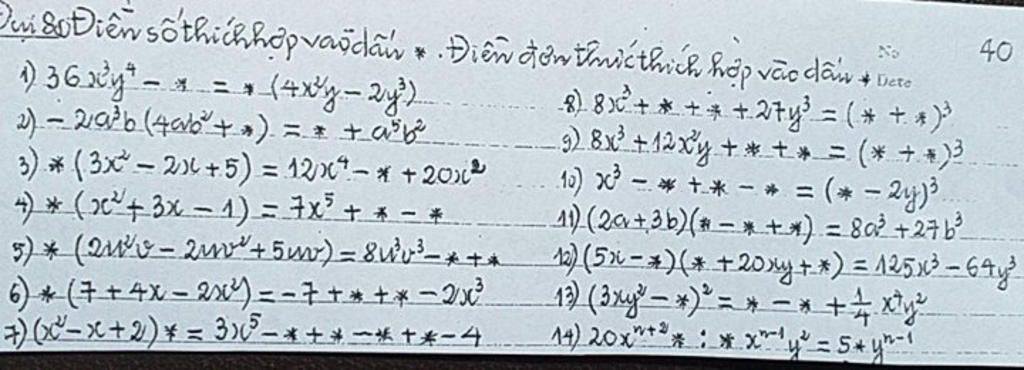 Bài 80 Điền số thích hợp vào dấu *. Điền đơn thức thích hợp vào dấu *
No
Date
40
1) 36x³y⁴ - * = * (4x²y - 2y³)
2) - 2a³b (4ab² + *) = * + a⁵b²
3) * (3x² - 2x + 5) = 12x⁴ - * + 20x²
4) * (x² + 3x - 1) = 7x⁵ + * - *
5) * (2u²v - 2uv² + 5uv) = 8u³v³ - * + *
6) * (7 + 4x - 2x²) = -7 + * + * - 2x³
7) (x² - x + 2) * = 3x⁵ - * + * - * + * - 4
8) 8x³ + * + * + 27y³ = (* + *)³
9) 8x³ + 12x²y + * + * = (* + *)³
10) x³ - * + * - * = (* - 2y)³
11) (2a + 3b)(* - * + *) = 8a³ + 27b³
12) (5x - *)(* + 20xy + *) = 125x³ - 64y³
13) (3xy² - *)² = * - * + 1/4 x⁴y²
14) 20xⁿ⁺² * : * xⁿ⁻¹y² = 5 * yⁿ⁻¹